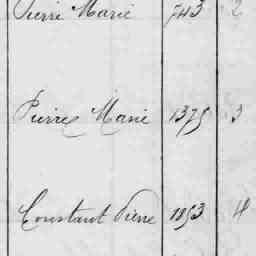 Pierre Marie 743 2
Pierre Marie 1375 3
Constant Pierre 1853 4